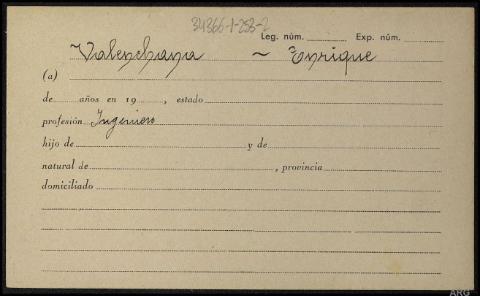 34366-1-253-2
Leg. núm. Exp. núm.
Valenchana ~ Enrique
(a)
de años en 19 , estado
profesión Ingeniero
hijo de y de
natural de , provincia
domiciliado
ARG